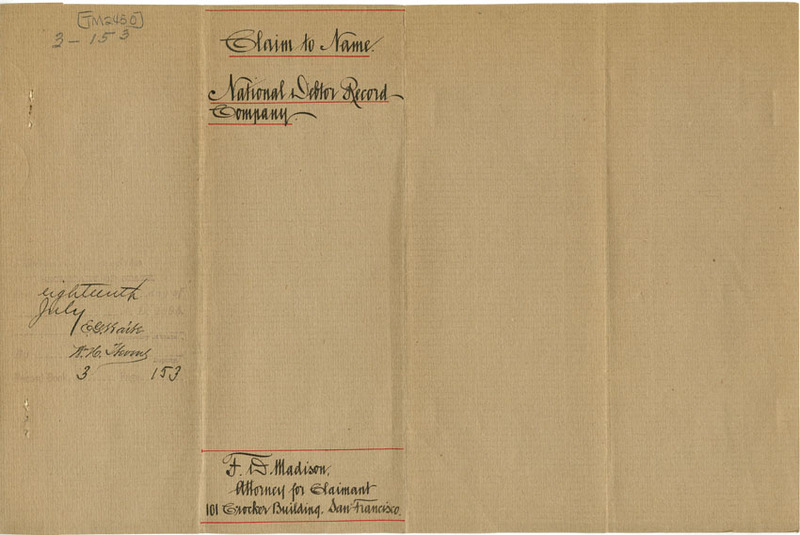 TM2450
3-153
Claim to Name.
National Debtor Record
Company.
eighteenth
July
W. H.
3 153
F. D. Madison,
Attorney for Claimant
101 Crocker Building, San Francisco.